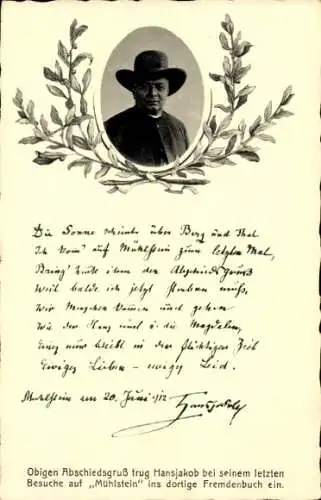 Die Sonne scheint über Berg und Thal
Ich komm' auf Mühlstein zum letzten Mal,
Bring' heute ihm den Abschiedsgruß
Weil balde ich jetzt sterben muß,
Wir Menschen kommen und gehen
Wie der Hans und die Magdalen,
Eines nur bleibt in der flüchtigen Zeit
Ewiges Lieben – ewiges Leid.
Mühlstein am 20. Juni 12 Hansjakob
Obigen Abschiedsgruß trug Hansjakob bei seinem letzten
Besuche auf „Mühlstein" ins dortige Fremdenbuch ein.